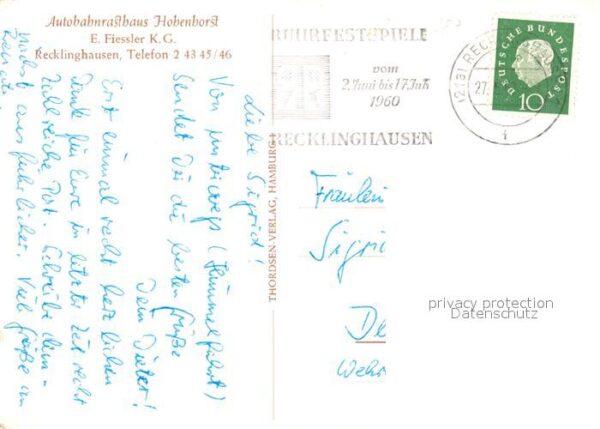 Autobahnrasthaus Hohenhorst
E. Fiessler K. G.
Recklinghausen, Telefon 2 43 45/46
RUHRFESTSPIELE
vom
2. Juni bis 17. Juli
1960
RECKLINGHAUSEN
(21a) RECK
27.
i
DEUTSCHE BUNDESPOST
10
THORDSEN-VERLAG, HAMBURG
Liebe Sigrid!
Von unterwegs (Himmelfahrt)
Sendet Dir die besten Grüße
Dein Dieter!
Erst einmal recht herzlichen
Dank für Eure in letzter Zeit recht
zahlreiche Post. Schreibe dem-
nächst ausführlicher. Viel Grüße an
Fräulein
Sigri
De
Wehr
privacy protection
Datenschutz